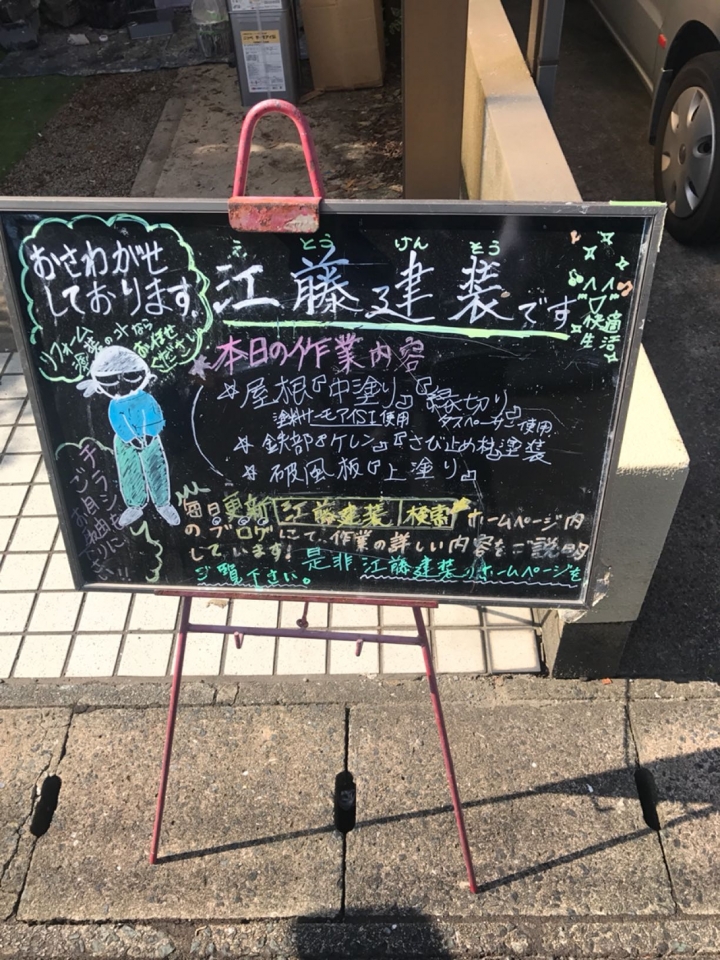 おさわがせ
しております。
リフォーム
塗装の事なら
お任せ
ください
え とう けん そう
江藤建装です
快適
生活
本日の作業内容
*屋根『中塗り』『縁切り』
塗料サーモアイSI使用 タスペーサー使用
*鉄部『ケレン』『さび止め材塗装
*破風板『上塗り』
チラシを
ご自由に
お取り下さい!!
毎日更新 江藤建装 検索 ホームページ内
のブログにて、作業の詳しい内容をご説明
しています! 是非江藤建装のホームページを
ご覧下さい。